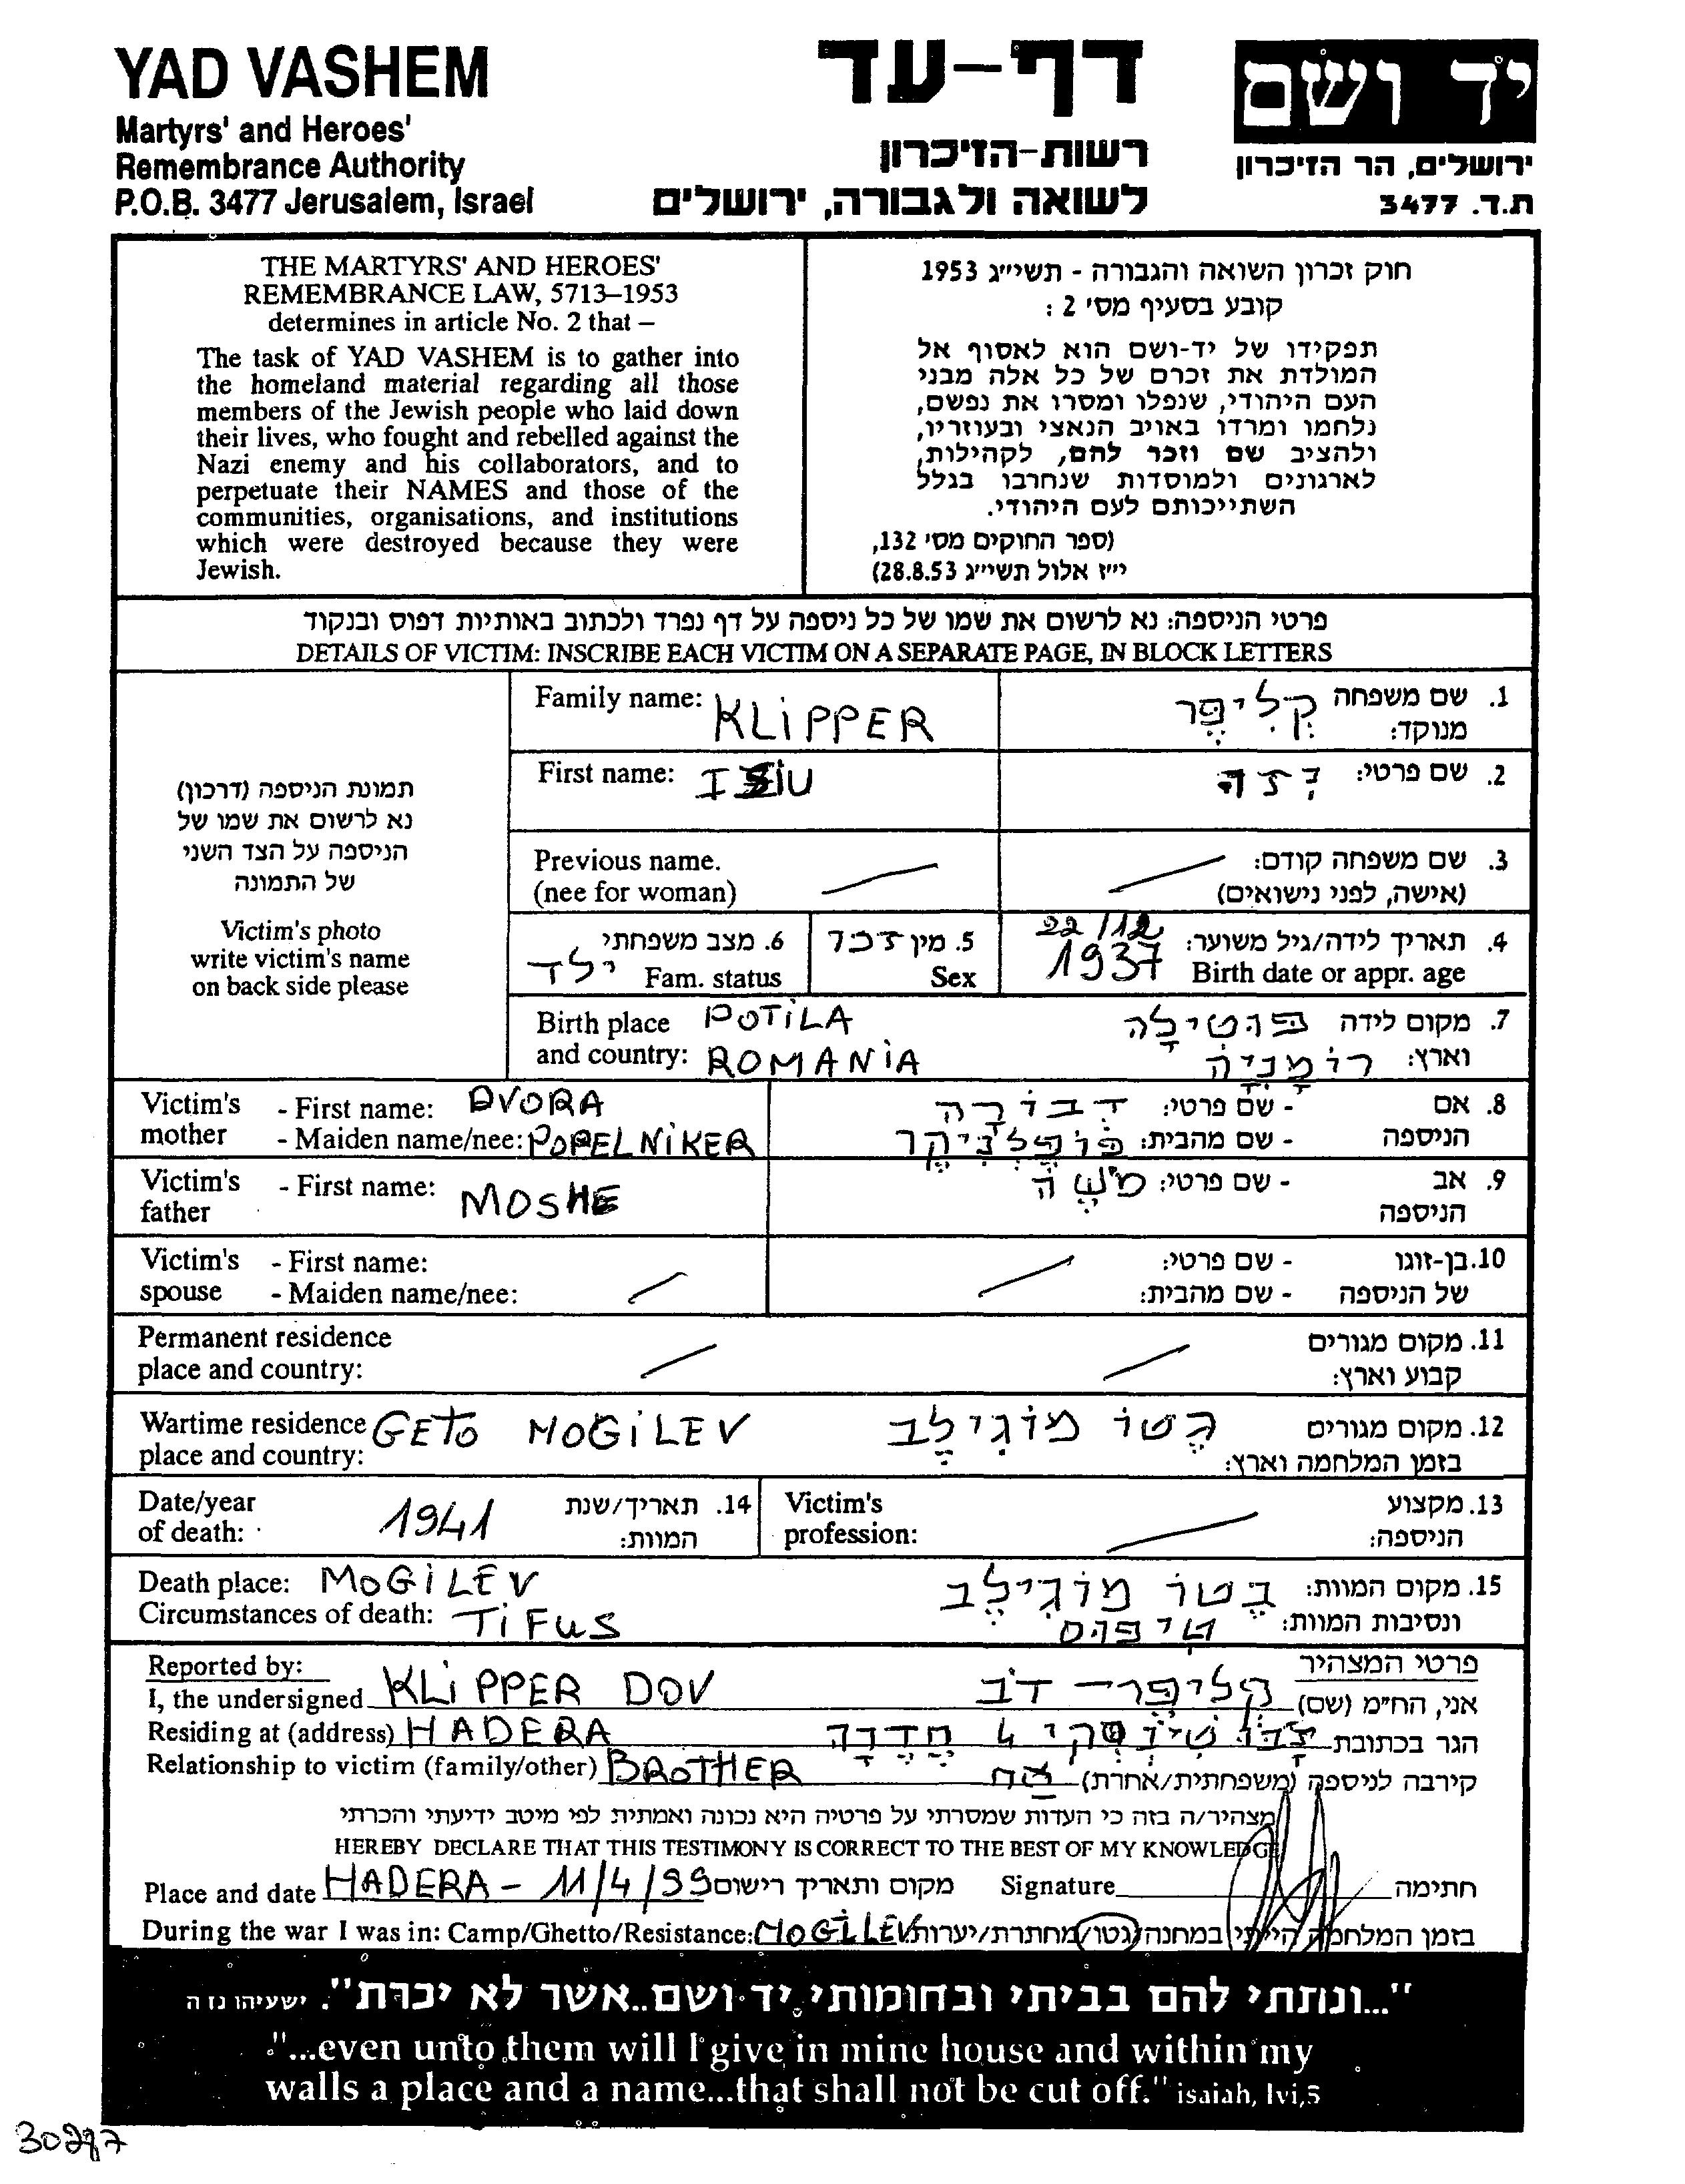 YAD VASHEM
Martyrs' and Heroes'
Remembrance Authority
P.O.B. 3477 Jerusalem, Israel
דף-עד
רשות-הזיכרון
לשואה ולגבורה, ירושלים
יד ושם
ירושלים, הר הזיכרון
ת.ד. 3477
THE MARTYRS' AND HEROES'
REMEMBRANCE LAW, 5713–1953
determines in article No. 2 that –
The task of YAD VASHEM is to gather into
the homeland material regarding all those
members of the Jewish people who laid down
their lives, who fought and rebelled against the
Nazi enemy and his collaborators, and to
perpetuate their NAMES and those of the
communities, organisations, and institutions
which were destroyed because they were
Jewish.
חוק זכרון השואה והגבורה - תשי״ג 1953
קובע בסעיף מס' 2 :
תפקידו של יד-ושם הוא לאסוף אל
המולדת את זכרם של כל אלה מבני
העם היהודי, שנפלו ומסרו את נפשם,
נלחמו ומרדו באויב הנאצי ובעוזריו,
ולהציב שם וזכר להם, לקהילות,
לארגונים ולמוסדות שנחרבו בגלל
השתייכותם לעם היהודי.
(ספר החוקים מס' 132,
י״ז אלול תשי״ג 28.8.53)
פרטי הניספה: נא לרשום את שמו של כל ניספה על דף נפרד ולכתוב באותיות דפוס ובנקוד
DETAILS OF VICTIM: INSCRIBE EACH VICTIM ON A SEPARATE PAGE, IN BLOCK LETTERS
תמונת הניספה (דרכון)
נא לרשום את שמו של
הניספה על הצד השני
של התמונה
Victim's photo
write victim's name
on back side please
Family name: KLiPPER
1. שם משפחה קליפר
מנוקד:
First name:
2. שם פרטי:
Previous name.
(nee for woman)
3. שם משפחה קודם:
(אישה, לפני נישואים)
6. מצב משפחתי
ילד Fam. status
5. מין זכר
Sex
4. תאריך לידה/גיל משוער: 22/12
Birth date or appr. age 1937
Birth place POTiLA
and country: ROMANiA
7. מקום לידה פוטילה
וארץ: רומניה
Victim's - First name: DVORA
mother - Maiden name/nee: POPELNiKER
8. אם - שם פרטי: דבורה
הניספה - שם מהבית: פופלניקר
Victim's - First name: MOSHE
father
9. אב - שם פרטי: משה
הניספה
Victim's - First name:
spouse - Maiden name/nee:
10. בן-זוגו - שם פרטי:
של הניספה - שם מהבית:
Permanent residence
place and country:
11. מקום מגורים
קבוע וארץ:
Wartime residence GETO MOGiLEV
place and country:
12. מקום מגורים גטו מוגילב
בזמן המלחמה וארץ:
Date/year 1941
of death:
14. תאריך/שנת
המוות:
Victim's
profession:
13. מקצוע
הניספה:
Death place: MOGiLEV
Circumstances of death: TiFUS
15. מקום המוות: גטו מוגילב
ונסיבות המוות: טיפוס
Reported by:
פרטי המצהיר
I, the undersigned KLiPPER DOV
אני, הח״מ (שם) קליפר – דב
Residing at (address) HADERA
הגר בכתובת ז'בוטינסקי 4 חדרה
Relationship to victim (family/other) BROTHER
קירבה לניספה (משפחתית/אחרת) אח
מצהיר/ה בזה כי העדות שמסרתי על פרטיה היא נכונה ואמתית לפי מיטב ידיעתי והכרתי
HEREBY DECLARE THAT THIS TESTIMONY IS CORRECT TO THE BEST OF MY KNOWLEDGE
Place and date HADERA - 11/4/99 מקום ותאריך רישום Signature חתימה
During the war I was in: Camp/Ghetto/Resistance: MOGiLEV בזמן המלחמה הייתי במחנה/גטו/מחתרת/יערות
"...ונתתי להם בביתי ובחומותי יד ושם..אשר לא יכרת". ישעיהו נו ה
"...even unto them will I give in mine house and within my
walls a place and a name...that shall not be cut off." isaiah, lvi,5